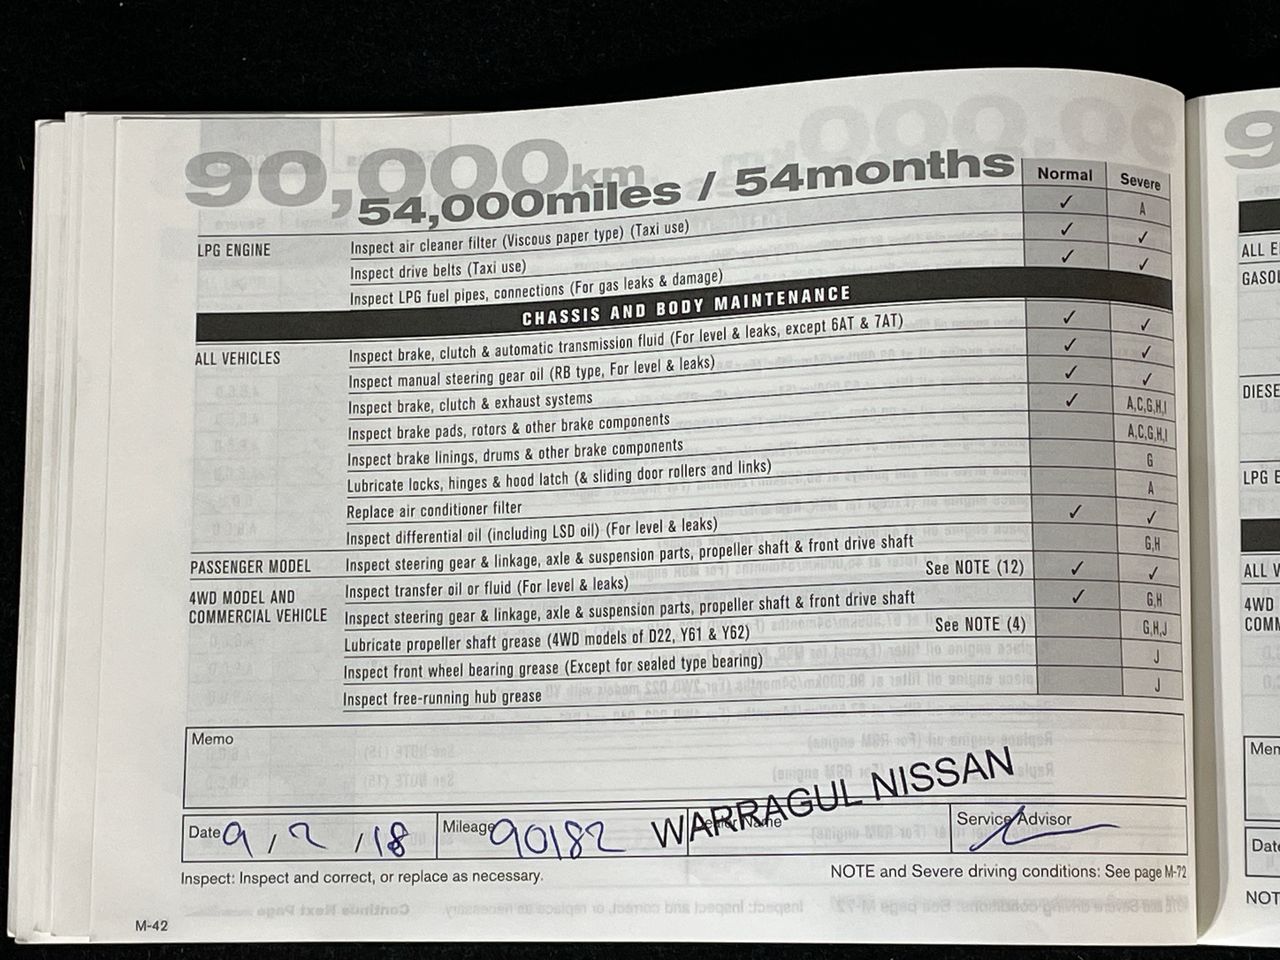 90,000km
54,000miles / 54months
Normal Severe
LPG ENGINE Inspect air cleaner filter (Viscous paper type) (Taxi use) ✓ A
Inspect drive belts (Taxi use) ✓ ✓
Inspect LPG fuel pipes, connections (For gas leaks & damage) ✓ ✓
CHASSIS AND BODY MAINTENANCE
ALL VEHICLES Inspect brake, clutch & automatic transmission fluid (For level & leaks, except 6AT & 7AT) ✓ ✓
Inspect manual steering gear oil (RB type, For level & leaks) ✓ ✓
Inspect brake, clutch & exhaust systems ✓ ✓
Inspect brake pads, rotors & other brake components ✓ A,C,G,H,I
Inspect brake linings, drums & other brake components A,C,G,H,I
Lubricate locks, hinges & hood latch (& sliding door rollers and links) G
Replace air conditioner filter A
Inspect differential oil (including LSD oil) (For level & leaks) ✓ ✓
PASSENGER MODEL Inspect steering gear & linkage, axle & suspension parts, propeller shaft & front drive shaft G,H
4WD MODEL AND COMMERCIAL VEHICLE Inspect transfer oil or fluid (For level & leaks) See NOTE (12) ✓ ✓
Inspect steering gear & linkage, axle & suspension parts, propeller shaft & front drive shaft ✓ G,H
Lubricate propeller shaft grease (4WD models of D22, Y61 & Y62) See NOTE (4) G,H,J
Inspect front wheel bearing grease (Except for sealed type bearing) J
Inspect free-running hub grease J
Memo
WARRAGUL NISSAN
Date 9 / 2 / 18 Mileage 90182 Name Service Advisor
Inspect: Inspect and correct, or replace as necessary.
NOTE and Severe driving conditions: See page M-72
M-42